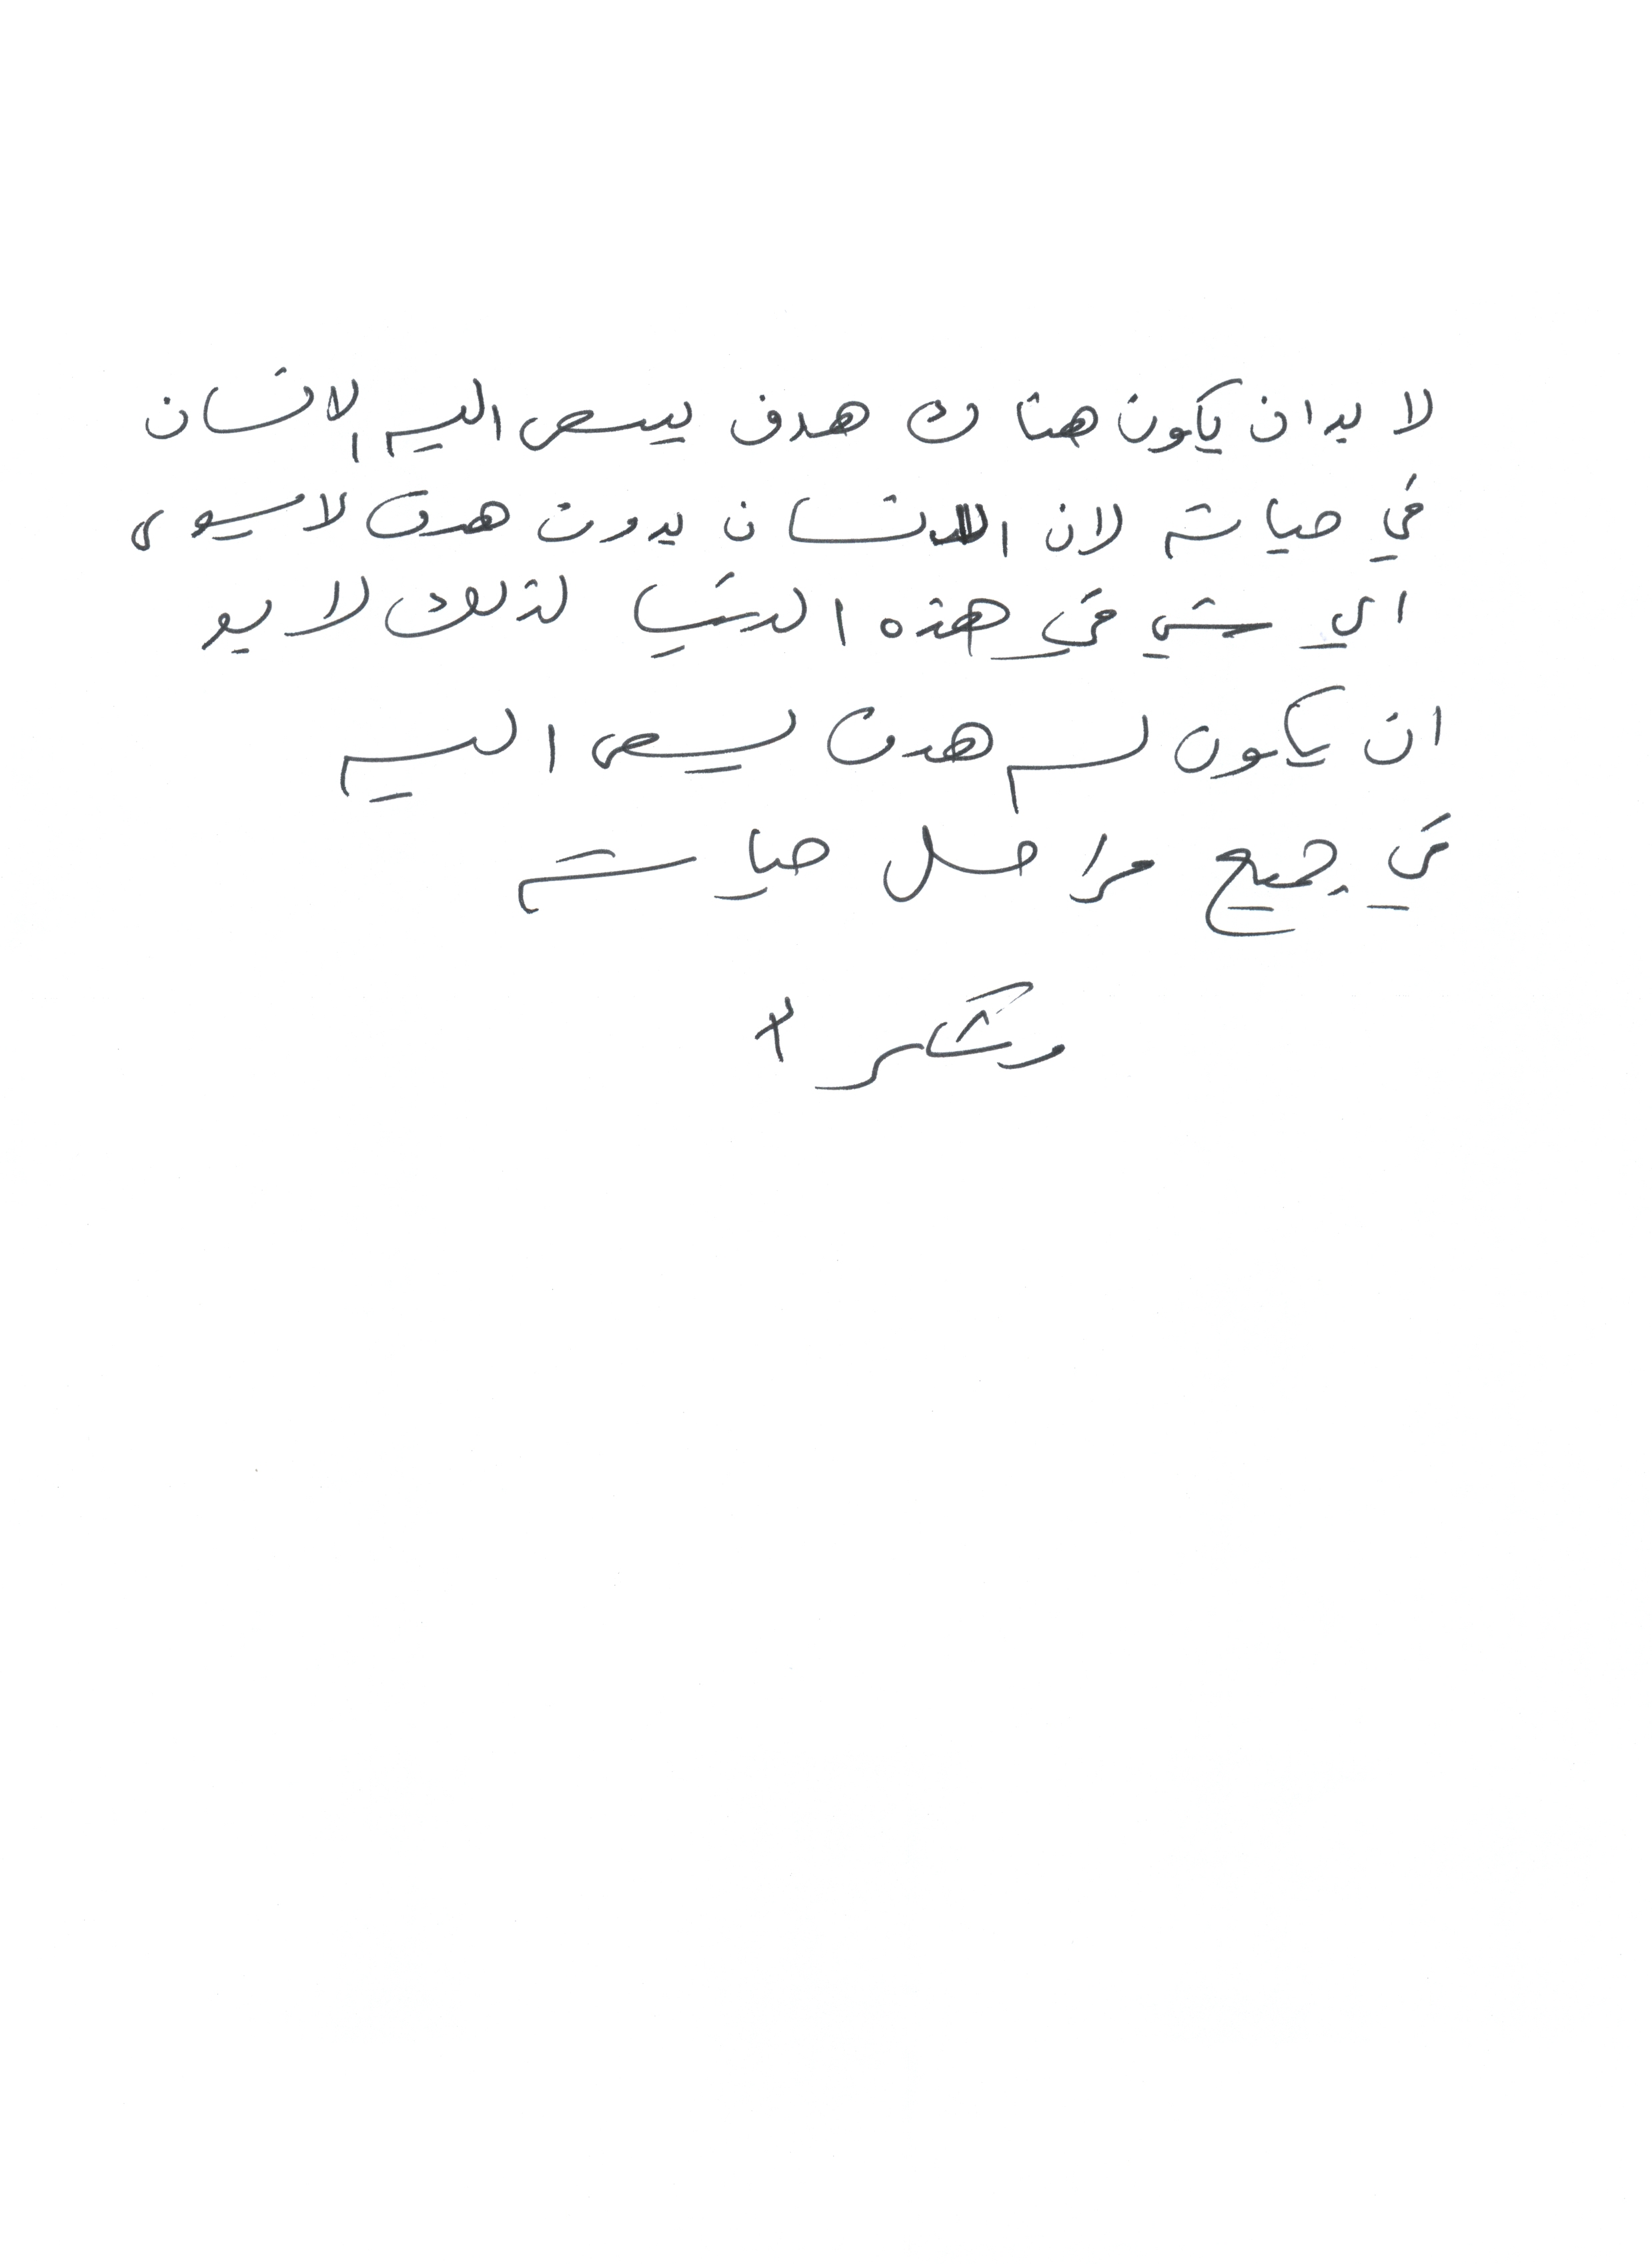 لا بد ان يكون هناك هدف يسعى اليه الانسان
في حياته لان الانسان بدون هدف لا يسوى
اي شي في هذه الدنيا لذلك لا بد
ان يكون له هدف يسعى اليه
في جميع مراحل حياته
وشكرا